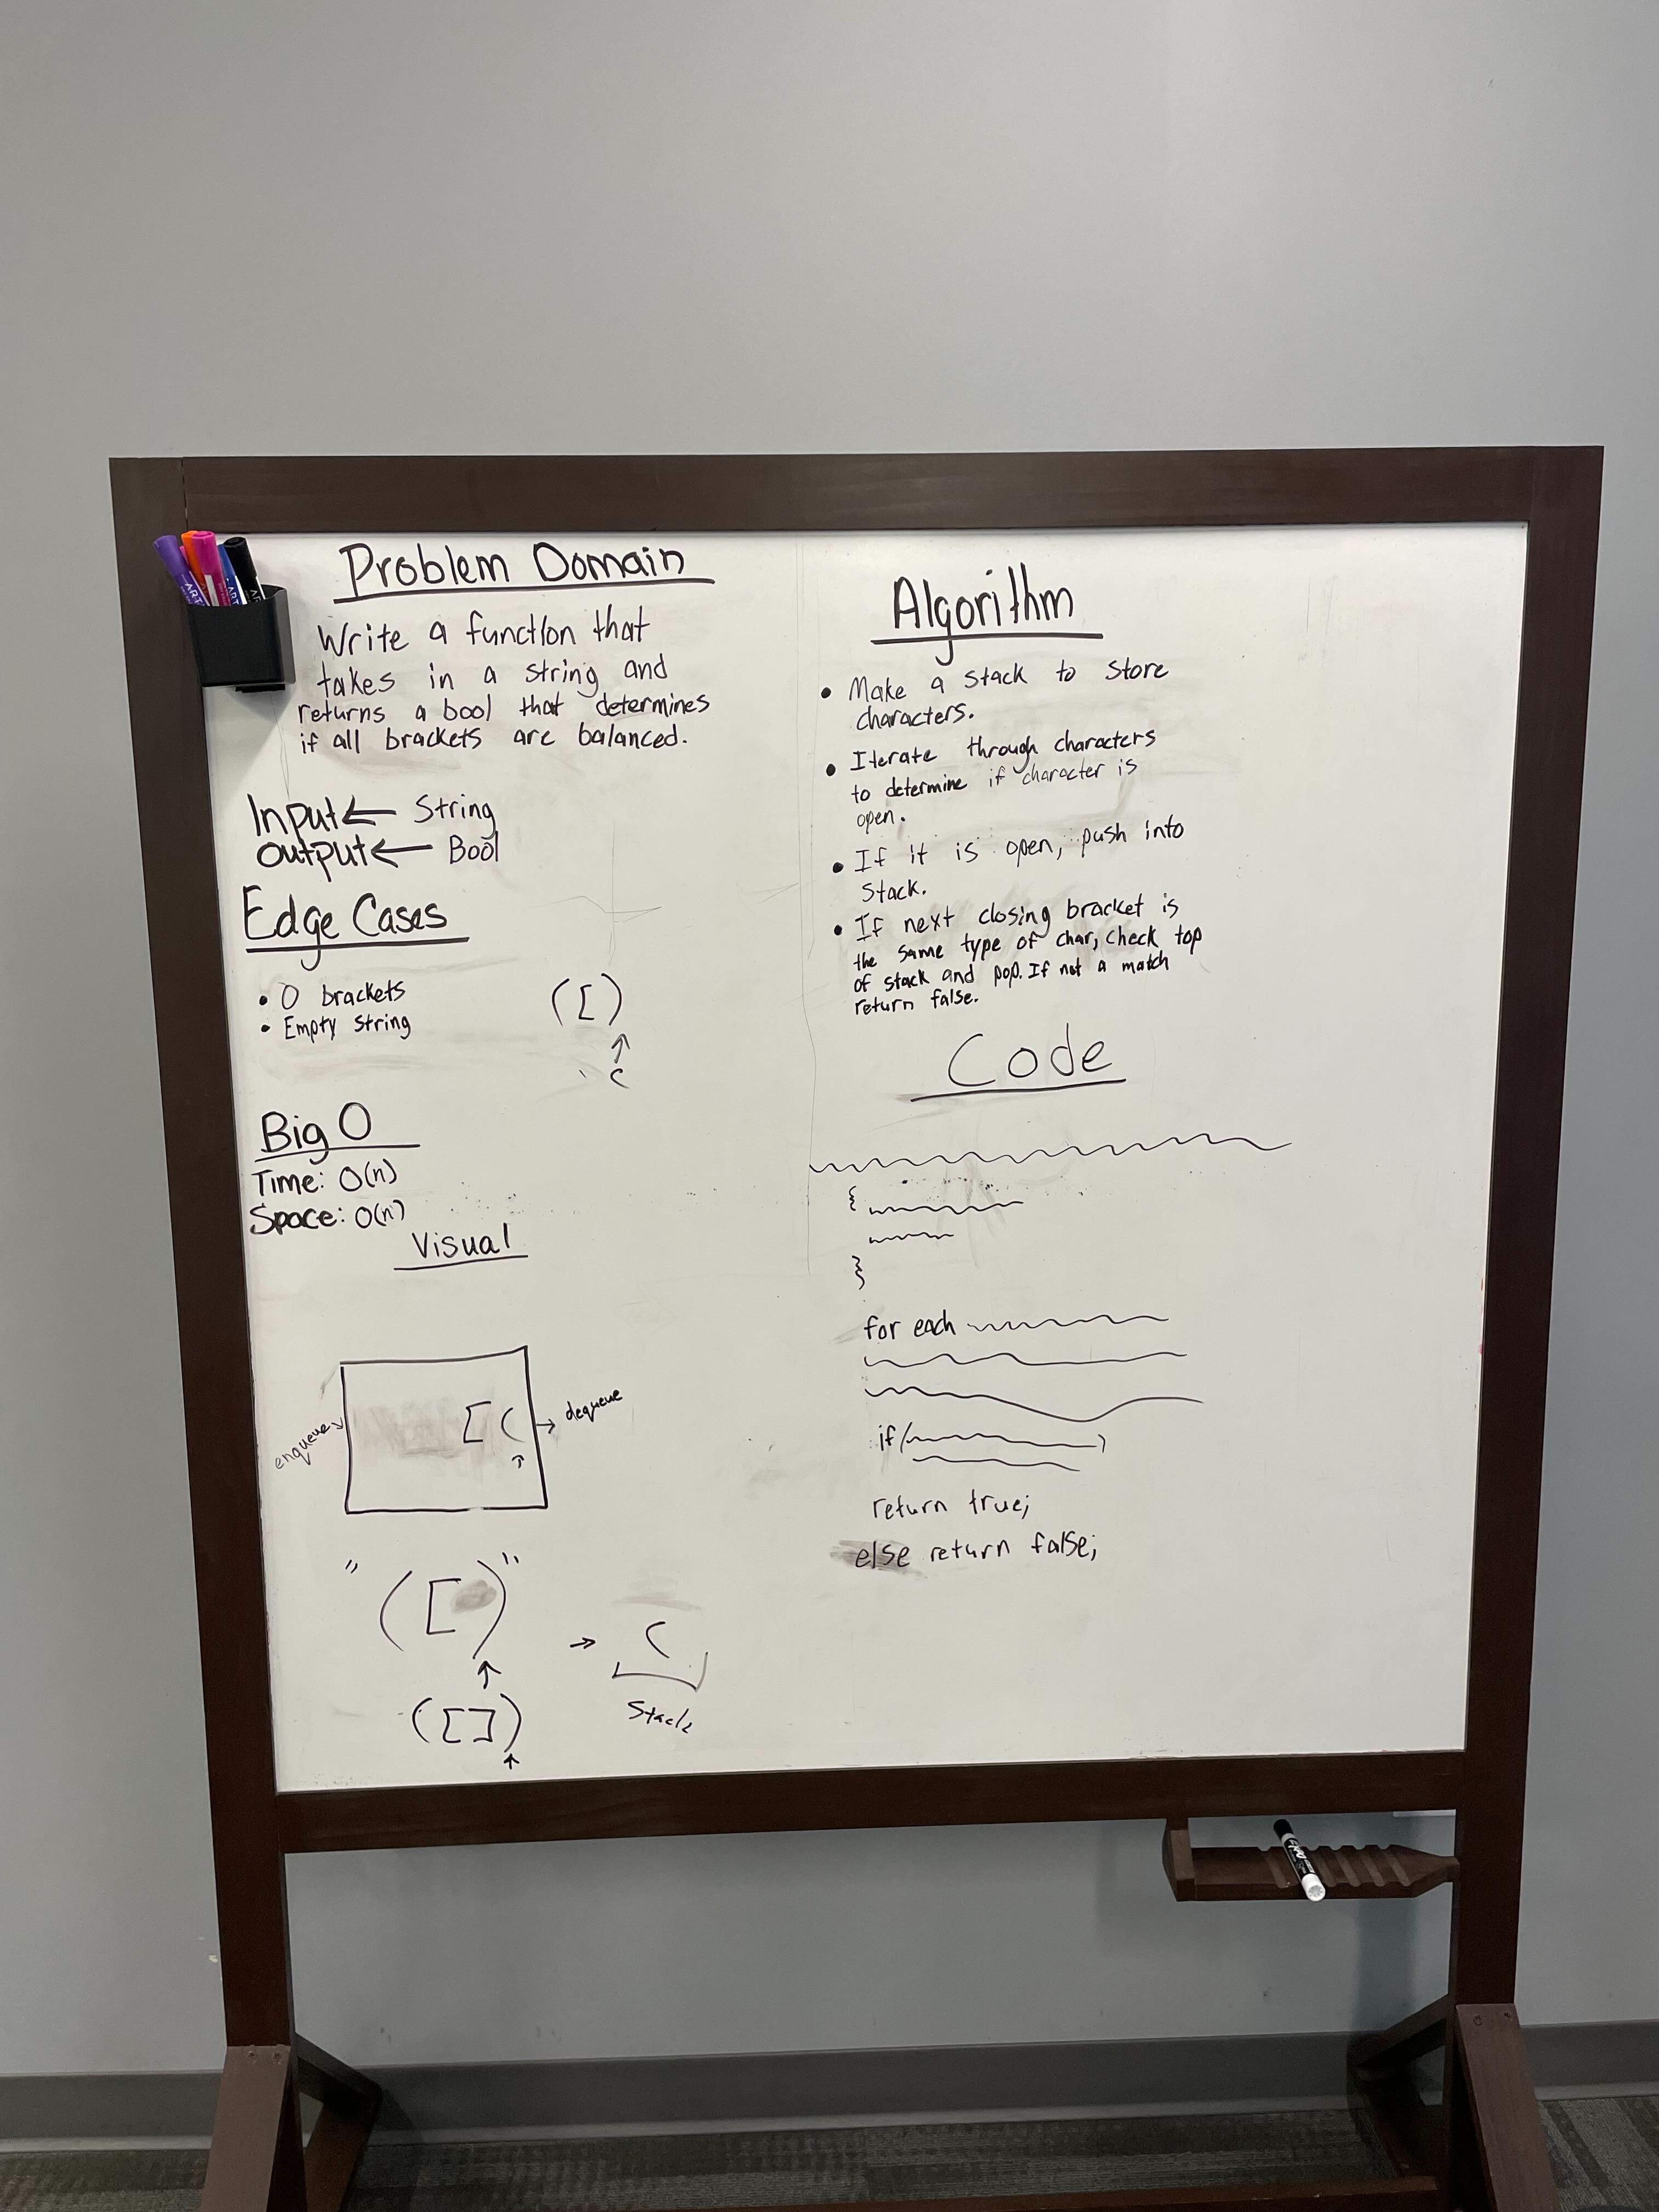 Problem Domain
Write a function that
takes in a string and
returns a bool that determines
if all brackets are balanced.
Input ← String
Output ← Bool
Edge Cases
• 0 brackets
• Empty string
([)
↑
c
Big O
Time: O(n)
Space: O(n)
Visual
enqueue
[ (
→ dequeue
↑
"([)"
↑
([])
↑
→ (
Stack
Algorithm
• Make a stack to store
characters.
• Iterate through characters
to determine if character is
open.
• If it is open, push into
Stack.
• If next closing bracket is
the same type of char, check top
of stack and pop. If not a match
return false.
Code
{
}
for each
if( )
return true;
else return false;